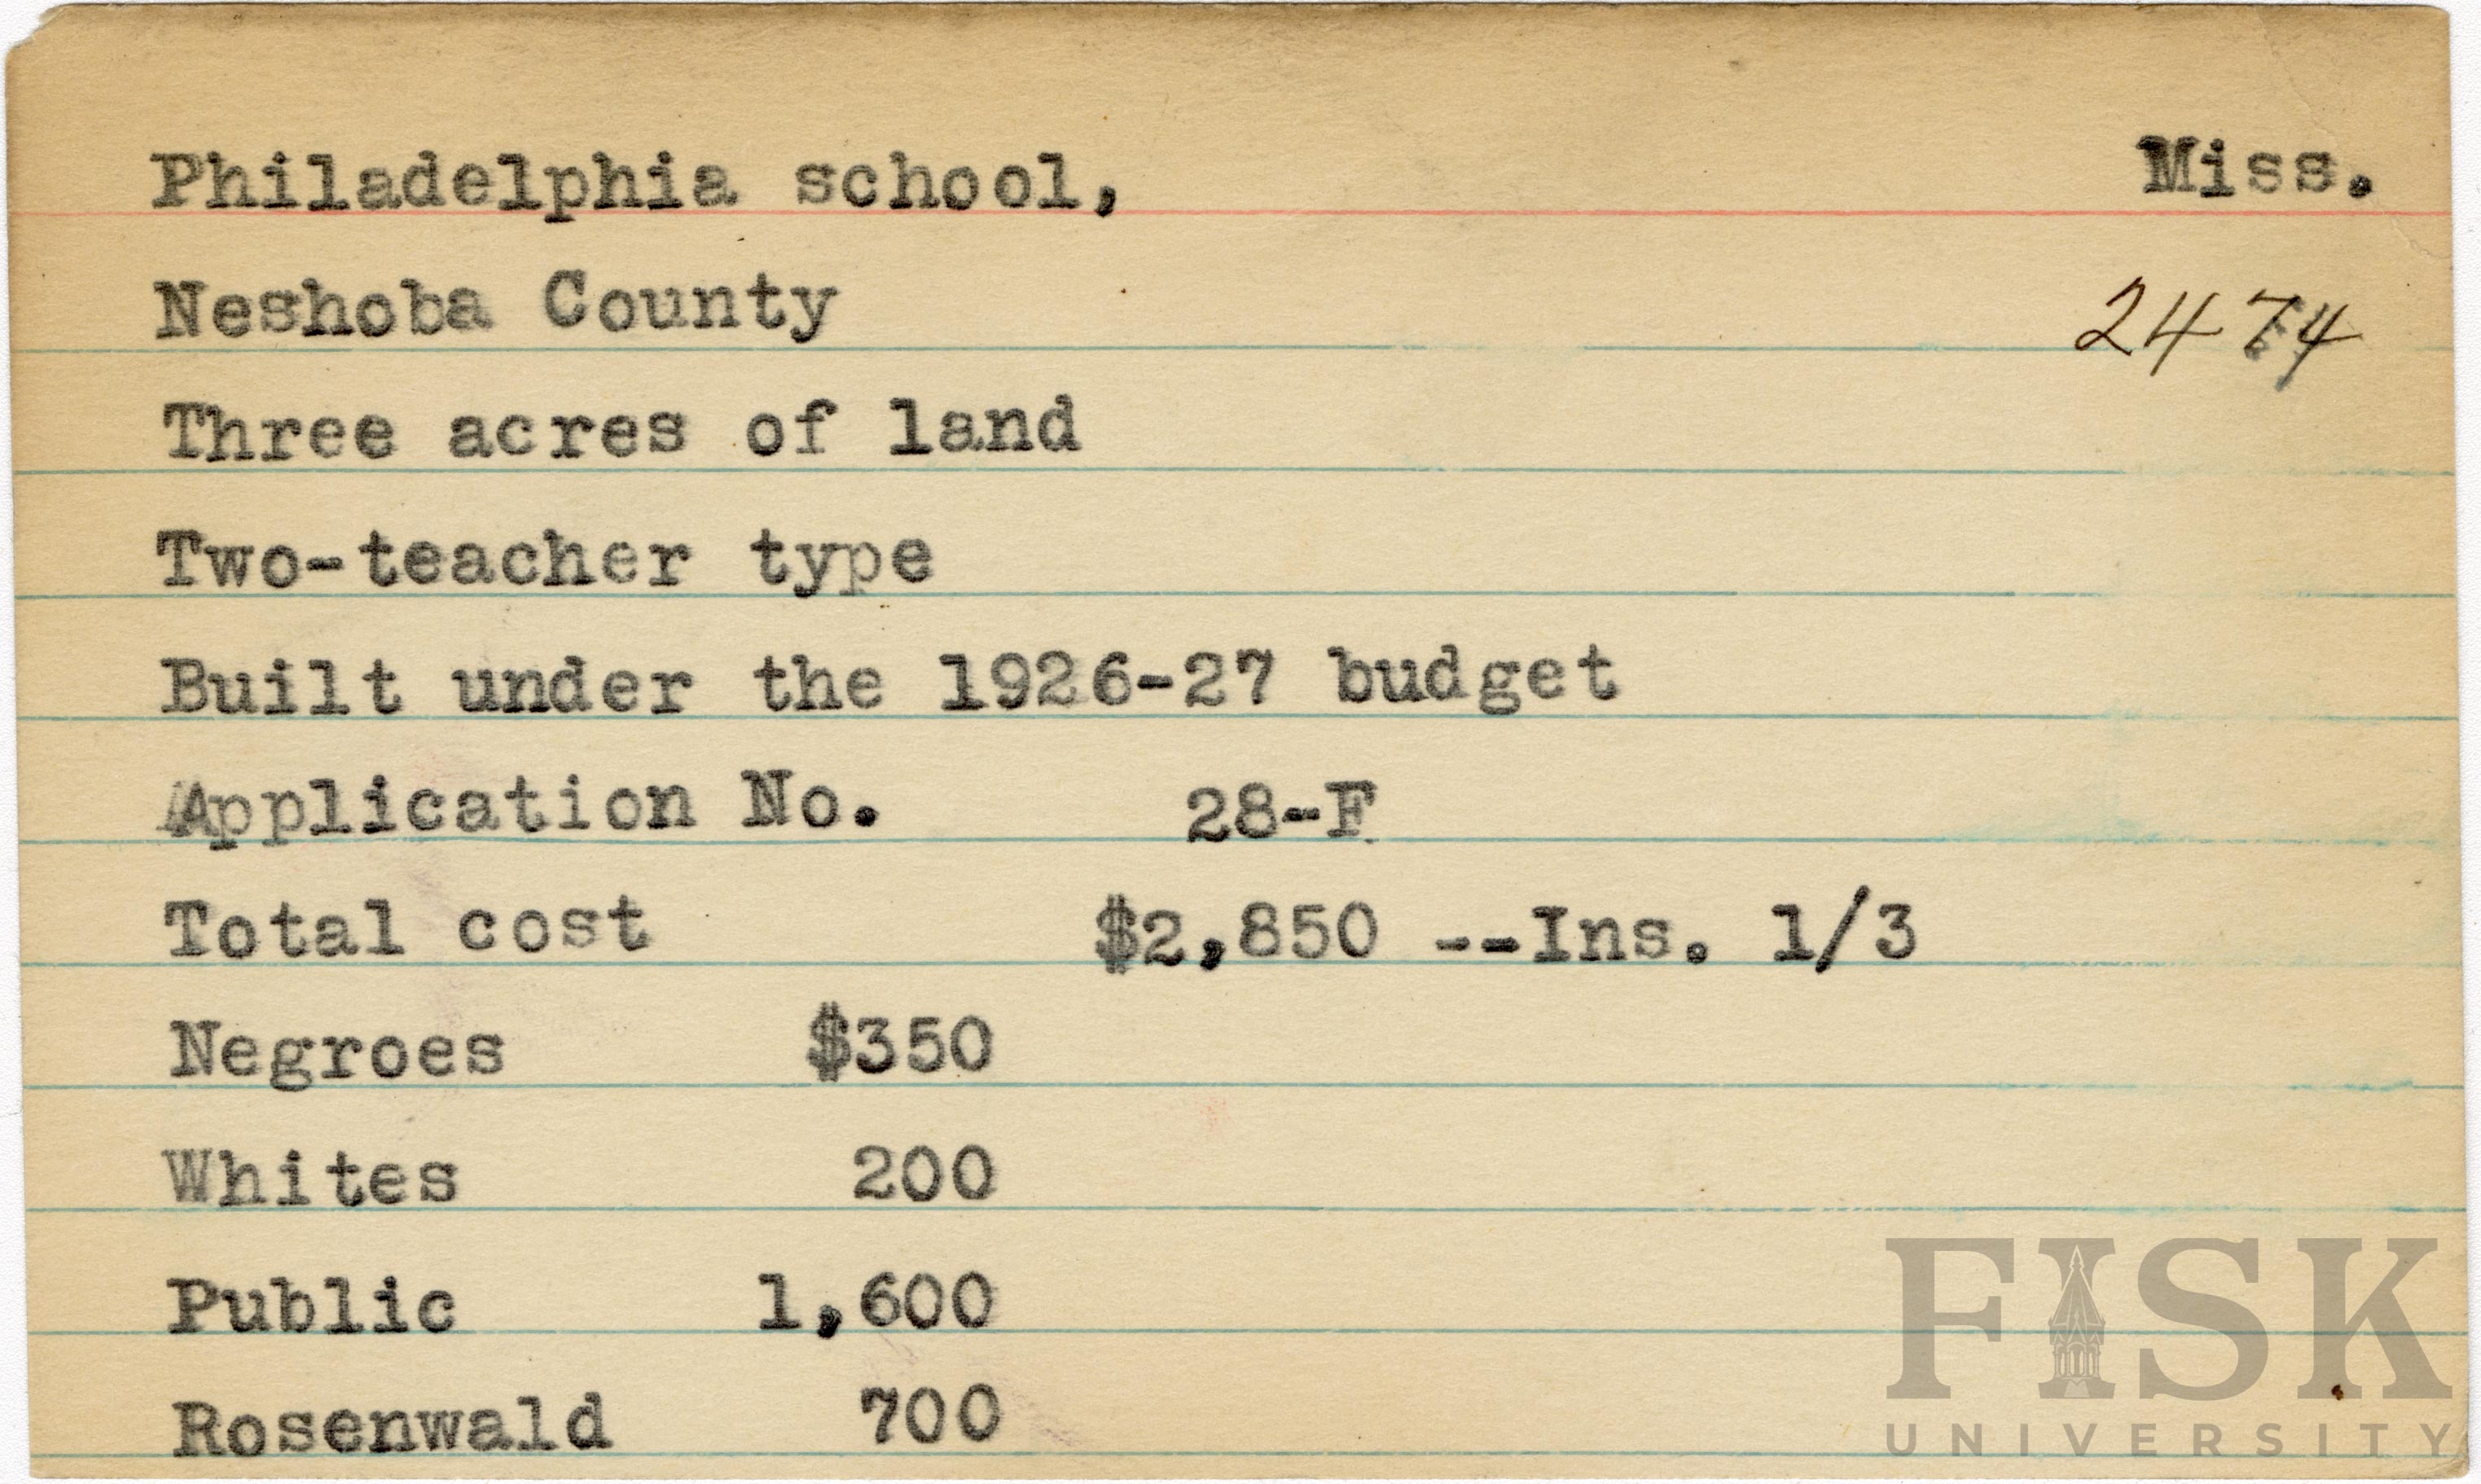 Philadelphia school, Miss.
Neshoba County 2474
Three acres of land
Two-teacher type
Built under the 1926-27 budget
Application No. 28-F
Total cost $2,850 --Ins. 1/3
Negroes $350
Whites 200
Public 1,600
Rosenwald 700
FISK
UNIVERSITY